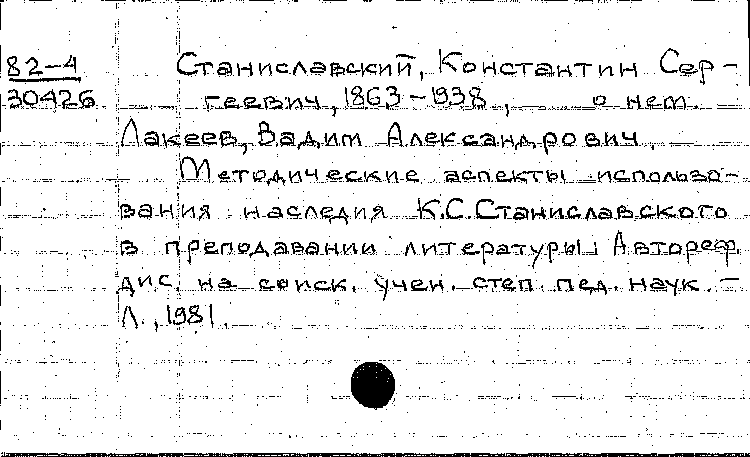 82-4
30426
Станиславский, Константин Сер-
геевич, 1863-1938, о нем.
Лакеев, Вадим Александрович.
Методические аспекты использо-
вания наследия К.С.Станиславского
в преподавании литературы: Автореф.
дис. на соиск. учен. степ. пед. наук. -
Л., 1981.